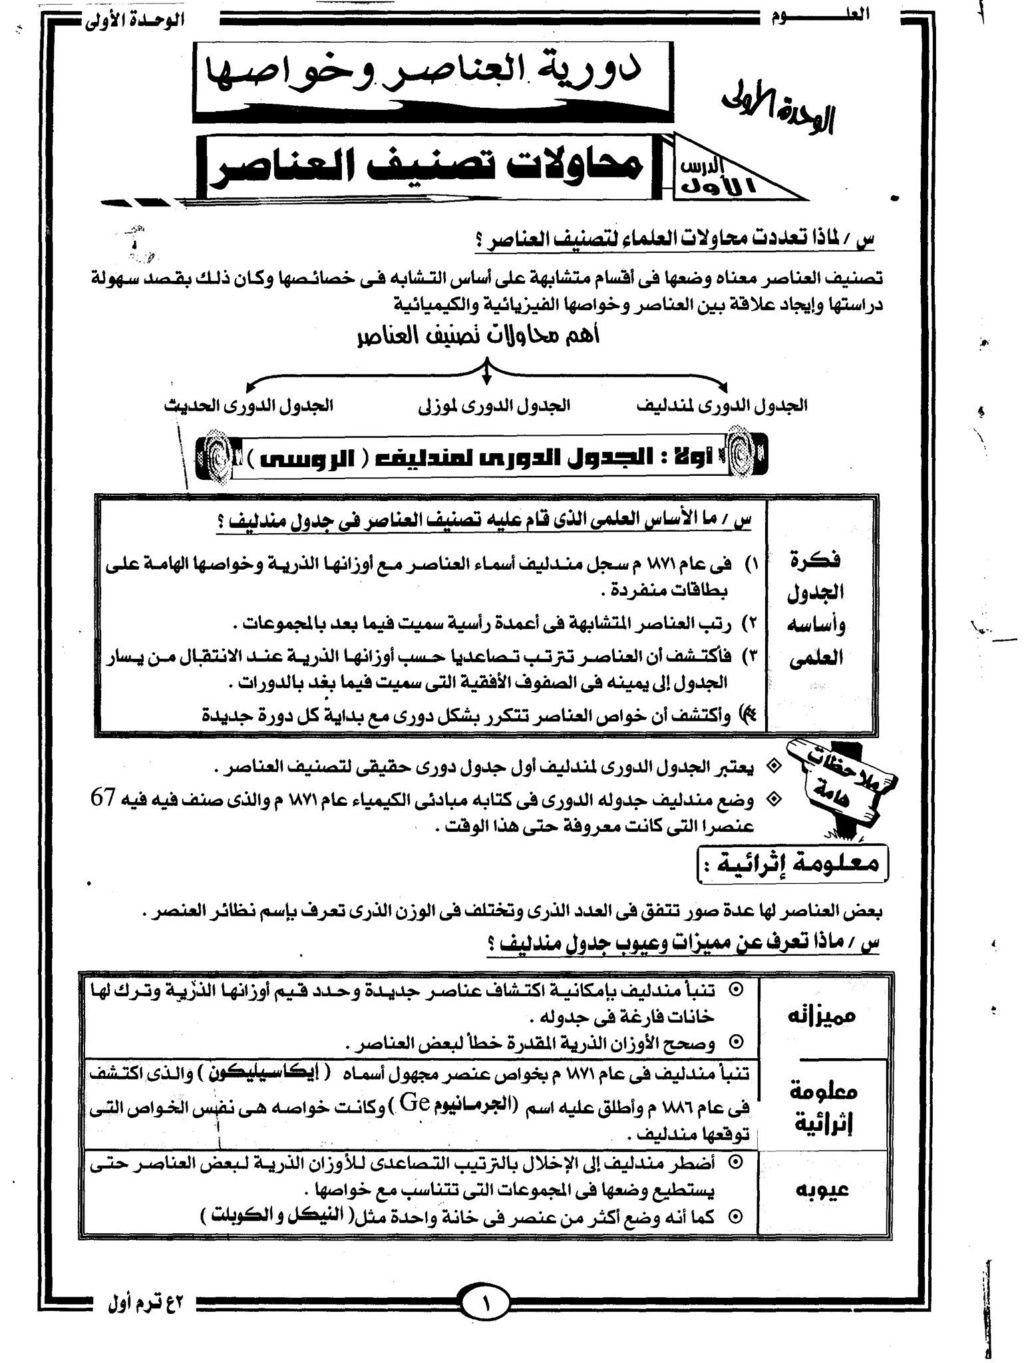 العلـــــــوم
الوحدة الأولى
دورية العناصر وخواصها
الوحدة الأولى
الدرس
الأول
محاولات تصنيف العناصر
س / لماذا تعددت محاولات العلماء لتصنيف العناصر ؟
تصنيف العناصر معناه وضعها فى أقسام متشابهة على أساس التشابه فى خصائصها وكان ذلك بقصد سهولة
دراستها وإيجاد علاقة بين العناصر وخواصها الفيزيائية والكيميائية
أهم محاولات تصنيف العناصر
الجدول الدورى لمندليف
الجدول الدورى لموزلى
الجدول الدورى الحديث
أولا : الجدول الدورى لمندليف ( الروسى )
س / ما الأساس العلمى الذى قام عليه تصنيف العناصر فى جدول مندليف ؟
فكرة
الجدول
وأساسه
العلمى
١) فى عام ١٨٧١ م سجل مندليف أسماء العناصر مع أوزانها الذرية وخواصها الهامة على
بطاقات منفردة .
٢) رتب العناصر المتشابهة فى أعمدة رأسية سميت فيما بعد بالمجموعات .
٣) فأكتشف أن العناصر تترتب تصاعديا حسب أوزانها الذرية عند الانتقال من يسار
الجدول إلى يمينه فى الصفوف الأفقية التى سميت فيما بغد بالدورات .
٤) وأكتشف أن خواص العناصر تتكرر بشكل دورى مع بداية كل دورة جديدة
ملاحظات
هامة
يعتبر الجدول الدورى لمندليف أول جدول دورى حقيقى لتصنيف العناصر .
وضع مندليف جدوله الدورى فى كتابه مبادئى الكيمياء عام ١٨٧١ م والذى صنف فيه فيه 67
عنصرا التى كانت معروفة حتى هذا الوقت .
معلومة إثرائية :
بعض العناصر لها عدة صور تتفق فى العدد الذرى وتختلف فى الوزن الذرى تعرف بإسم نظائر العنصر .
س / ماذا تعرف عن مميزات وعيوب جدول مندليف ؟
مميزاته
تنبأ مندليف بإمكانية اكتشاف عناصر جديدة وحدد قيم أوزانها الذرية وترك لها
خانات فارغة فى جدوله .
وصحح الأوزان الذرية المقدرة خطأ لبعض العناصر .
معلومة
إثرائية
تنبأ مندليف فى عام ١٨٧١ م بخواص عنصر مجهول أسماه ( إيكاسيليكون ) والذى اكتشف
فى عام ١٨٨٦ م وأطلق عليه اسم (الجرمانيوم Ge ) وكانت خواصه هى نفس الخواص التى
توقعها مندليف .
عيوبه
أضطر مندليف إلى الإخلال بالترتيب التصاعدى للأوزان الذرية لبعض العناصر حتى
يستطيع وضعها فى المجموعات التى تتناسب مع خواصها .
كما أنه وضع أكثر من عنصر فى خانة واحدة مثل ( النيكل و الكوبلت )
٢ع ترم أول
١